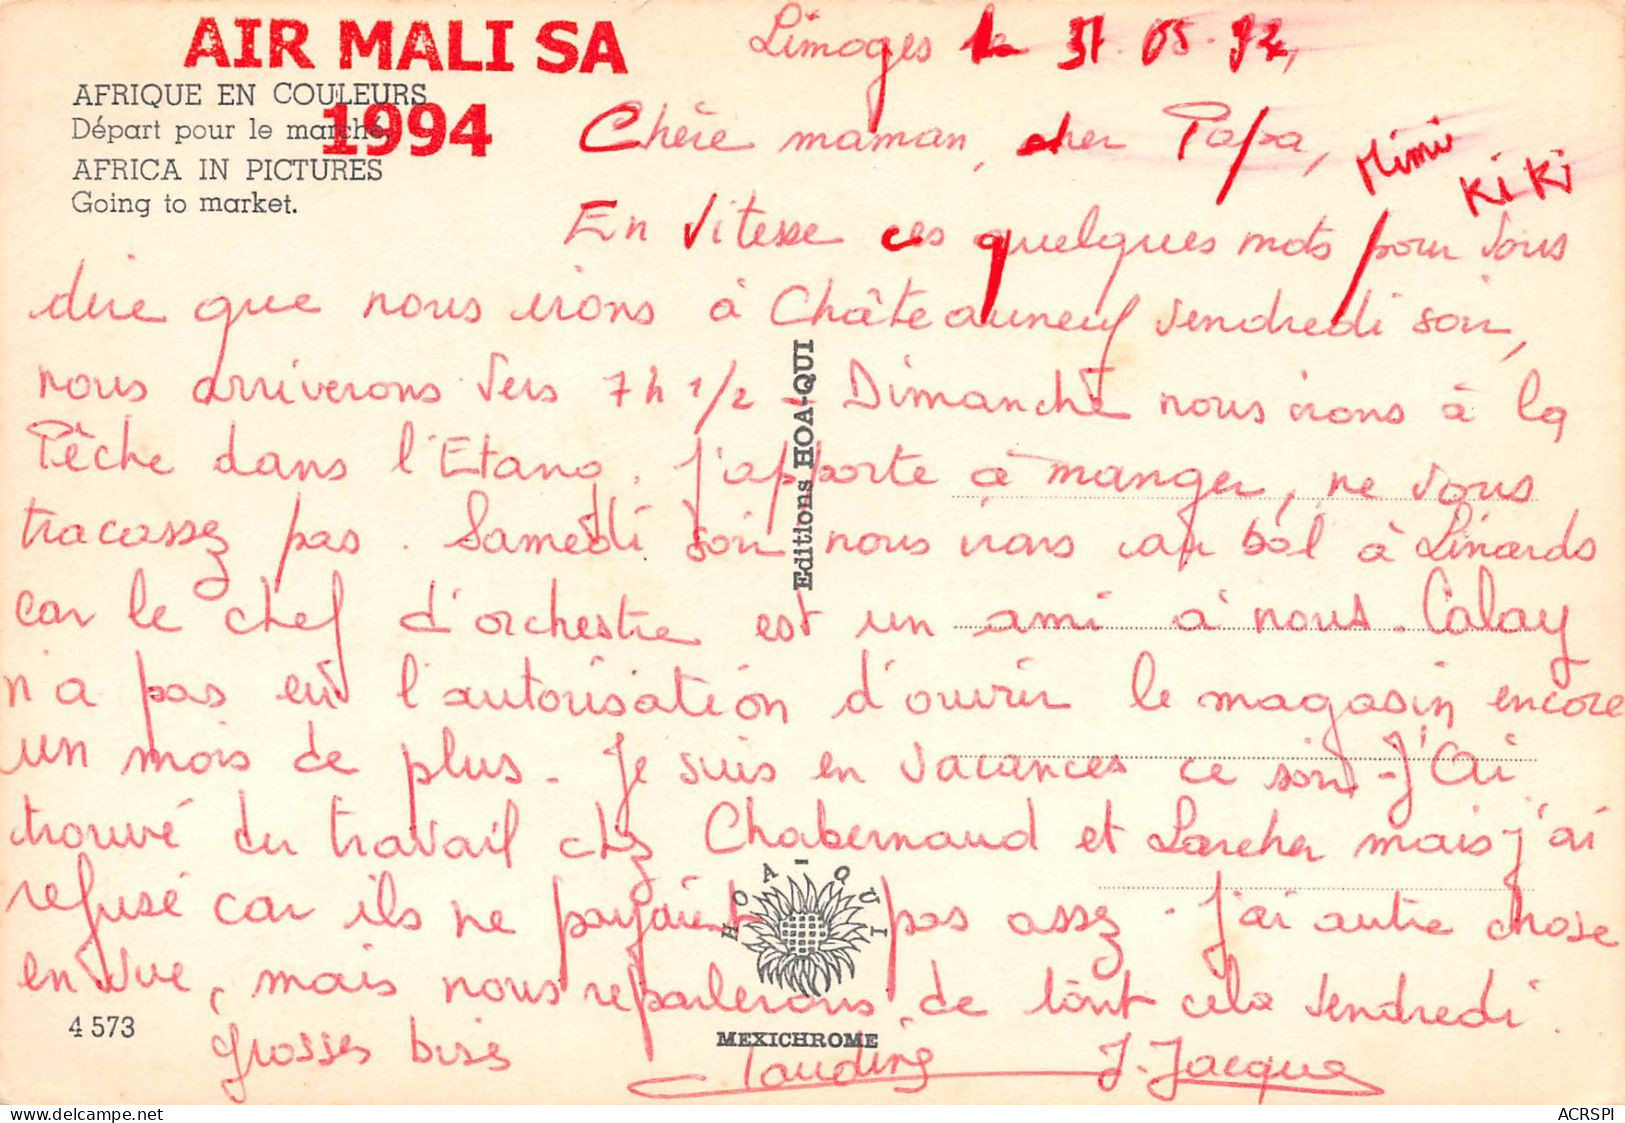 AIR MALI SA
1994
AFRIQUE EN COULEURS
Départ pour le marché.
AFRICA IN PICTURES
Going to market.
Limoges le 31.05.92,
Chère maman, cher Papa,
Mimi
KiKi
En vitesse ces quelques mots pour vous
dire que nous irons à Châteauneuf vendredi soir,
nous arriverons vers 7h 1/2 - Dimanche nous irons à la
Pêche dans l'Etang. J'apporte à manger, ne vous
tracassez pas. Samedi soir nous irons au bal à Linards
car le chef d'orchestre est un ami à nous. Calay
n'a pas eu l'autorisation d'ouvrir le magasin encore
un mois de plus. Je suis en vacances ce soir - J'ai
trouvé du travail chez Chabernaud et Larcher mais j'ai
refusé car ils ne payaient pas assez. J'ai autre chose
en vue, mais nous reparlerons de tout cela vendredi.
Grosses bises
Claudine J. Jacques
Editions HOA-QUI
HOA-QUI
MEXICHROME
4 573
ACRSPI